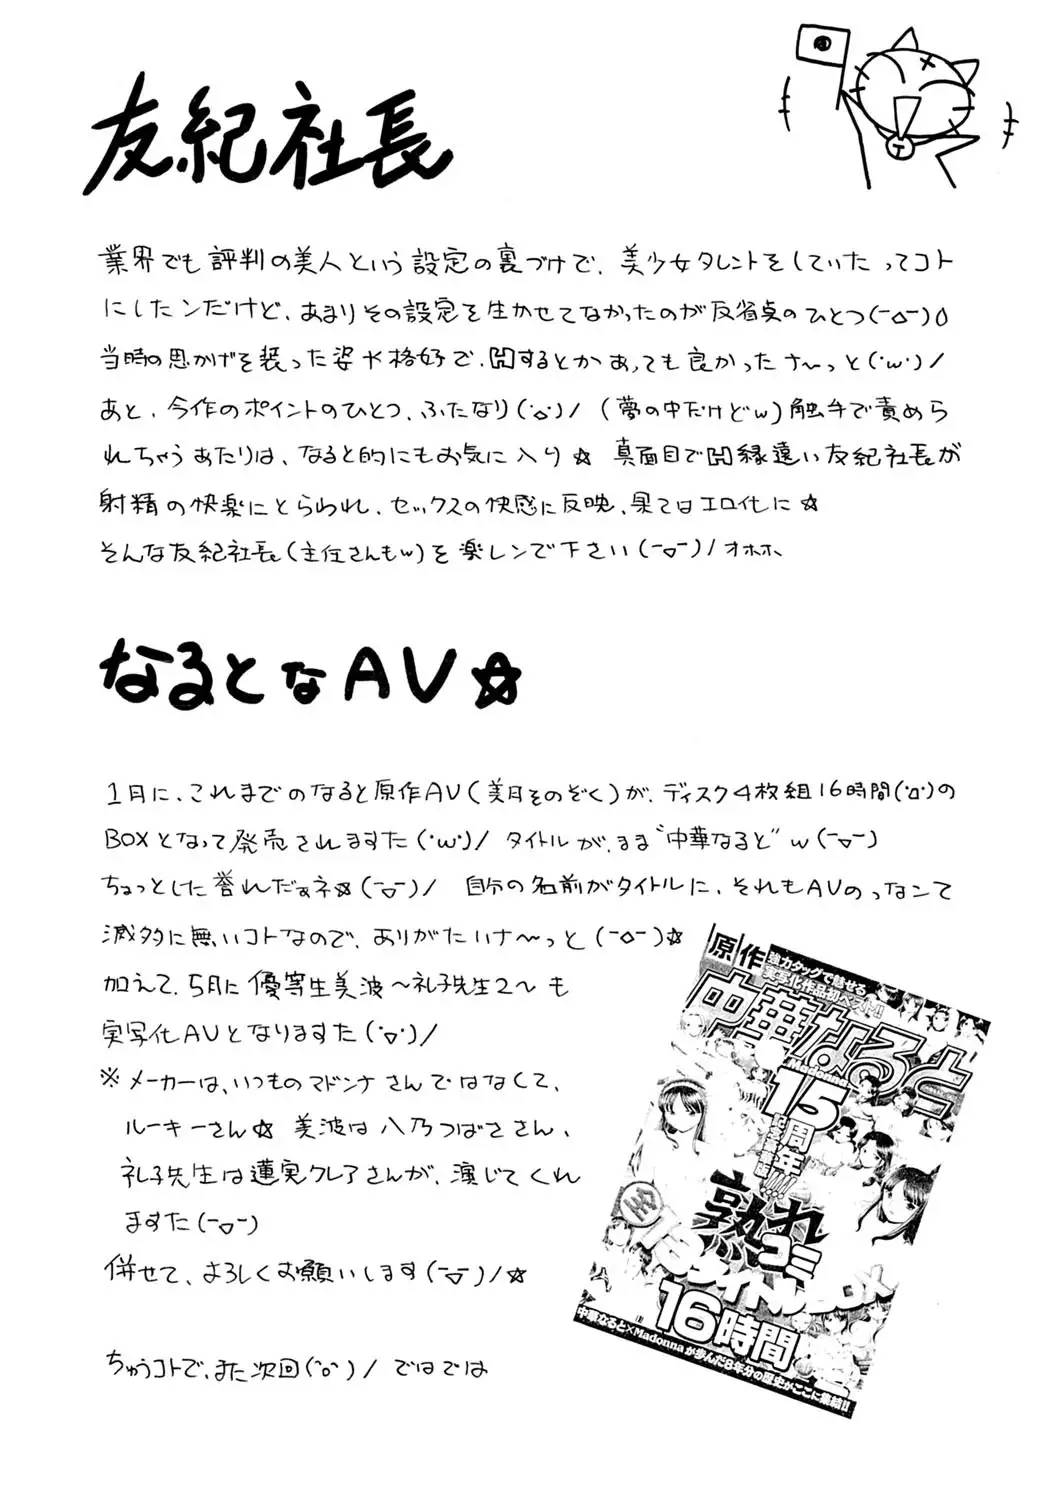 友紀社長
業界でも評判の美人という設定の裏づけで、美少女タレントをしていたってコト
にしたンだけど、あまりその設定を生かせてなかったのが反省点のひとつ(-△-)
当時の思かげを装った姿や格好で、するとかあっても良かったナ〜っと(･ω･)/
あと、今作のポイントのひとつ、ふたなり(･o･)/ (夢の中だけどw)触手で責めら
れちゃうあたりは、なると的にもお気に入り☆ 真面目でH縁遠い友紀社長が
射精の快楽にとらわれ、セックスの快感に反映、果てはエロ化に☆
そんな友紀社長(主任さんもw)を楽レンで下さい(-▽-)/オホホ、
なるとなAV☆
1月に、これまでのなると原作AV(美月その ぞく)が、ディスク4枚組16時間(･o･)の
BOXとなって発売されますた(･ω･)/ タイトルが、まま“中華なると”w(-▽-)
ちょっとした誉れだぁネ☆(-▽-)/ 自分の名前がタイトルに、それもAVのっなンて
滅多に無いコトなので、ありがたいナ〜っと(-o-)☆
加えて、5月に優等生美波〜礼子先生2〜も
実写化AVとなりますた(･▽･)/
※メーカーは、いつものマドンナさんではなくて、
ルーキーさん☆ 美波は八乃つばささん、
礼子先生は蓮実クレアさんが、演じてくれ
ますた(-▽-)
併せて、よろしくお願いします(-▽-)/☆
ちゅうコトで、また次回(･o･)/ ではでは
T
原作
強力タッグで魅せる
実写化作品初ベスト!!
中華なると
Madonna
15周年
熟れ
コミ
全13タイトルBOX
16時間
中華なると×Madonnaが歩んだ8年分の歴史がここに集結!!